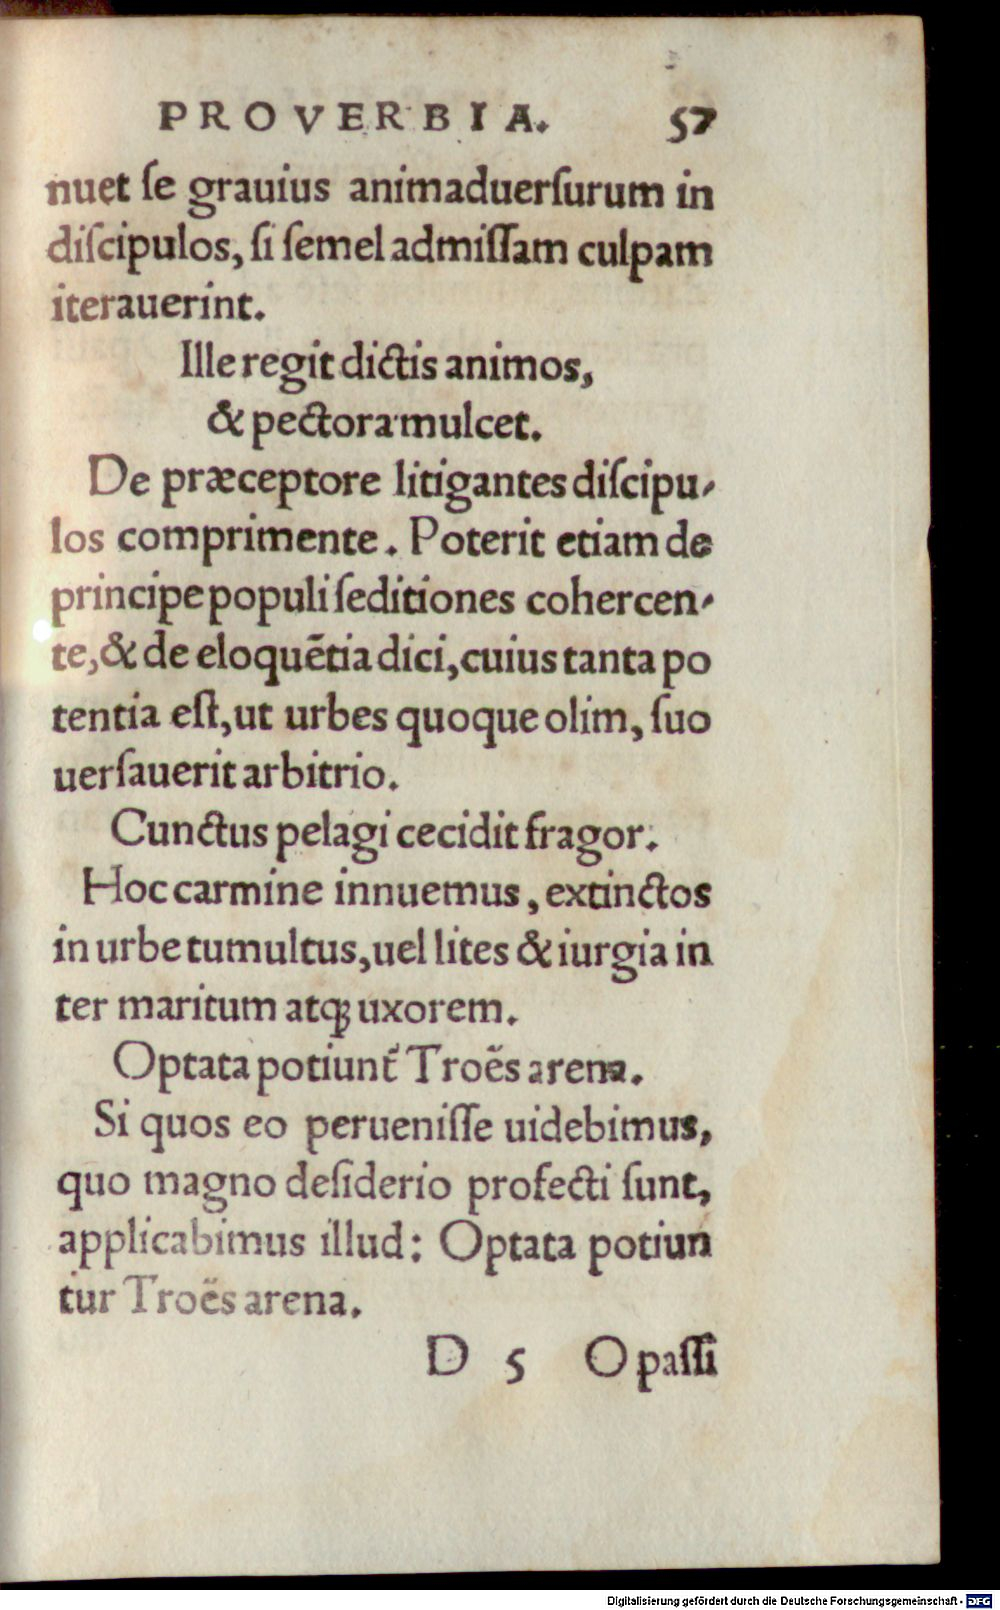 PROVERBIA. 57
nuet se grauius animaduersurum in
discipulos, si semel admissam culpam
iterauerint.
Ille regit dictis animos,
& pectora mulcet.
De præceptore litigantes discipu-
los comprimente. Poterit etiam de
principe populi seditiones cohercen-
te, & de eloquẽtia dici, cuius tanta po
tentia est, ut urbes quoque olim, suo
uersauerit arbitrio.
Cunctus pelagi cecidit fragor.
Hoc carmine innuemus, extinctos
in urbe tumultus, uel lites & iurgia in
ter maritum atqꝫ uxorem.
Optata potiunt᷑ Troës arena.
Si quos eo peruenisse uidebimus,
quo magno desiderio profecti sunt,
applicabimus illud: Optata potiun
tur Troës arena.
D 5 O passi
Digitalisierung gefördert durch die Deutsche Forschungsgemeinschaft - DFG